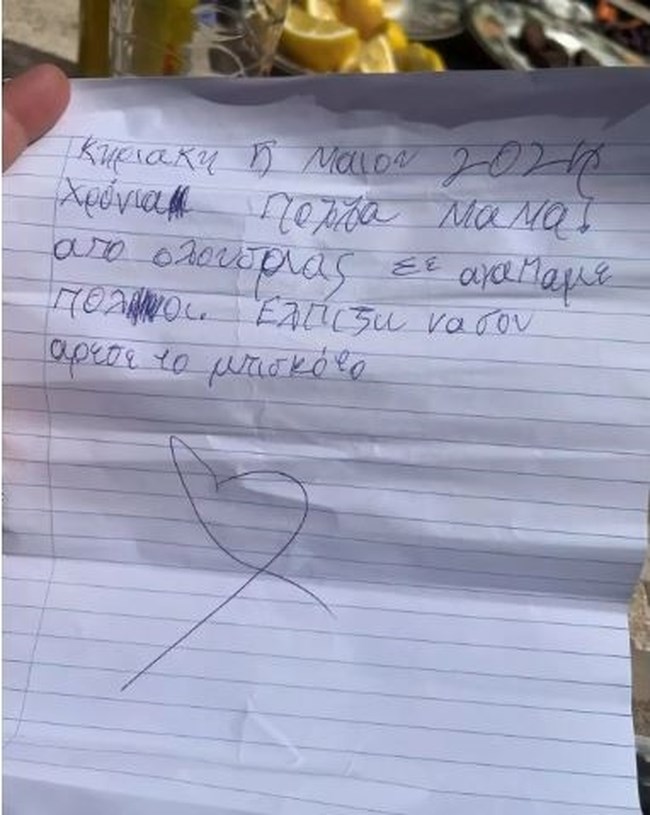 Κηριακη 5 Μαιου 2024
Χρόνια Πολλα ΜαΜα!
απο ολουσριας σε αγαπαμε
πολοι. Ελπιζω να σου
αρεσε το μπισκότο